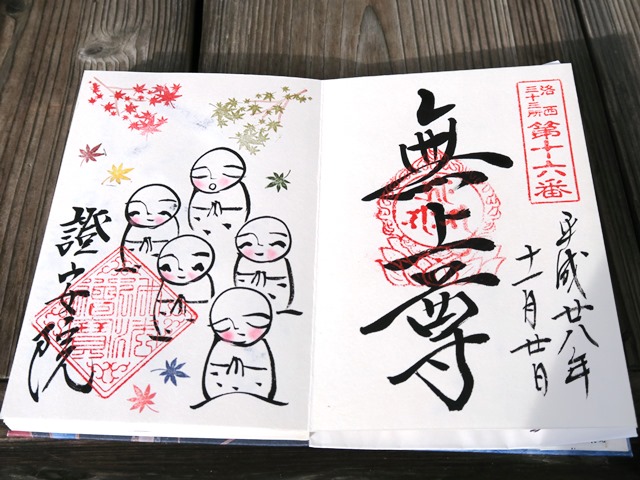 洛西
三十三所
第十六番
平成廿八年
十一月廿日
無上尊
證安院